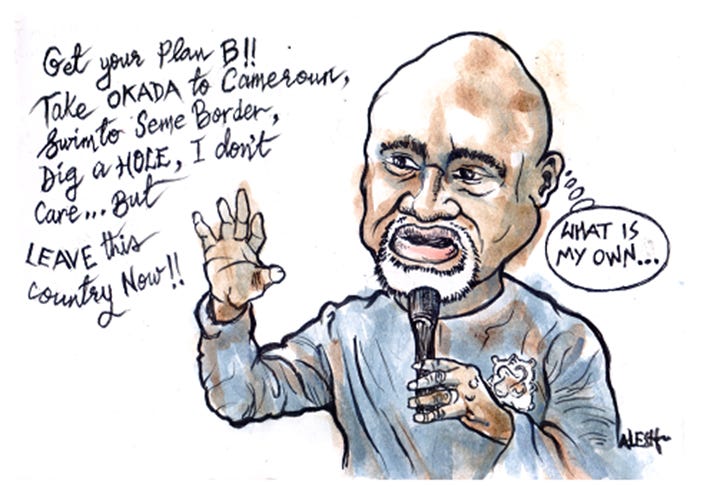 Get your Plan B!!
Take OKADA to Cameroun,
Swim to Seme Border,
Dig a HOLE, I don't
Care... But
LEAVE this
Country Now!!
WHAT IS
MY OWN...